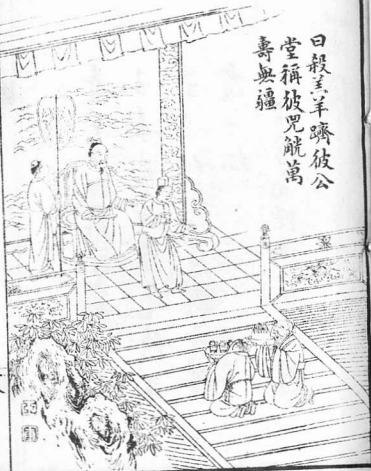 曰殺羔羊躋彼公
堂稱彼兕觥萬
壽無疆